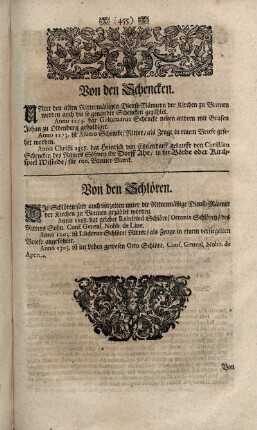 (455)
Von den Schencken.
UNter den alten Rittermäßigen Dienst-Männern der Kirchen zu Bremen
werden auch die so genandte Schencken gezählet.
Anno 1219. hat Schencke neben andern mit Grafen
Johan zu Oldenburg gehuldiget.
Anno 1273. ist Alverus Schencke, Ritter, als Zeuge in einem Briefe gese-
het worden.
Anno Christi 1315. hat Heinrich von gekaufft von Christian
Schencken des Ritters Sohne, ihr Dorff Ahe, in der Börde oder Kirch-
spiel Wilstede, für 100. Bremer Marck.
Von den Schlören.
DIe Schlören seyd auch vorzeiten unter die Rittermäßige Dienst-Männer
der Kirchen zu Bremen gezählet worden.
Anno 1188. hat gelebet Reinfried Schlöre, Ottonis Schlören, des
Ritters Sohn. Conf. General. Nobb. de Line.
Anno 1203. ist Lüderus Schlöre, Ritter, als Zeuge in einem versiegelten
Briefe angeführet.
Anno 1303. ist im Leben gewesen Otto Schlöre. Conf. General. Nobb. de
Apen.
Von